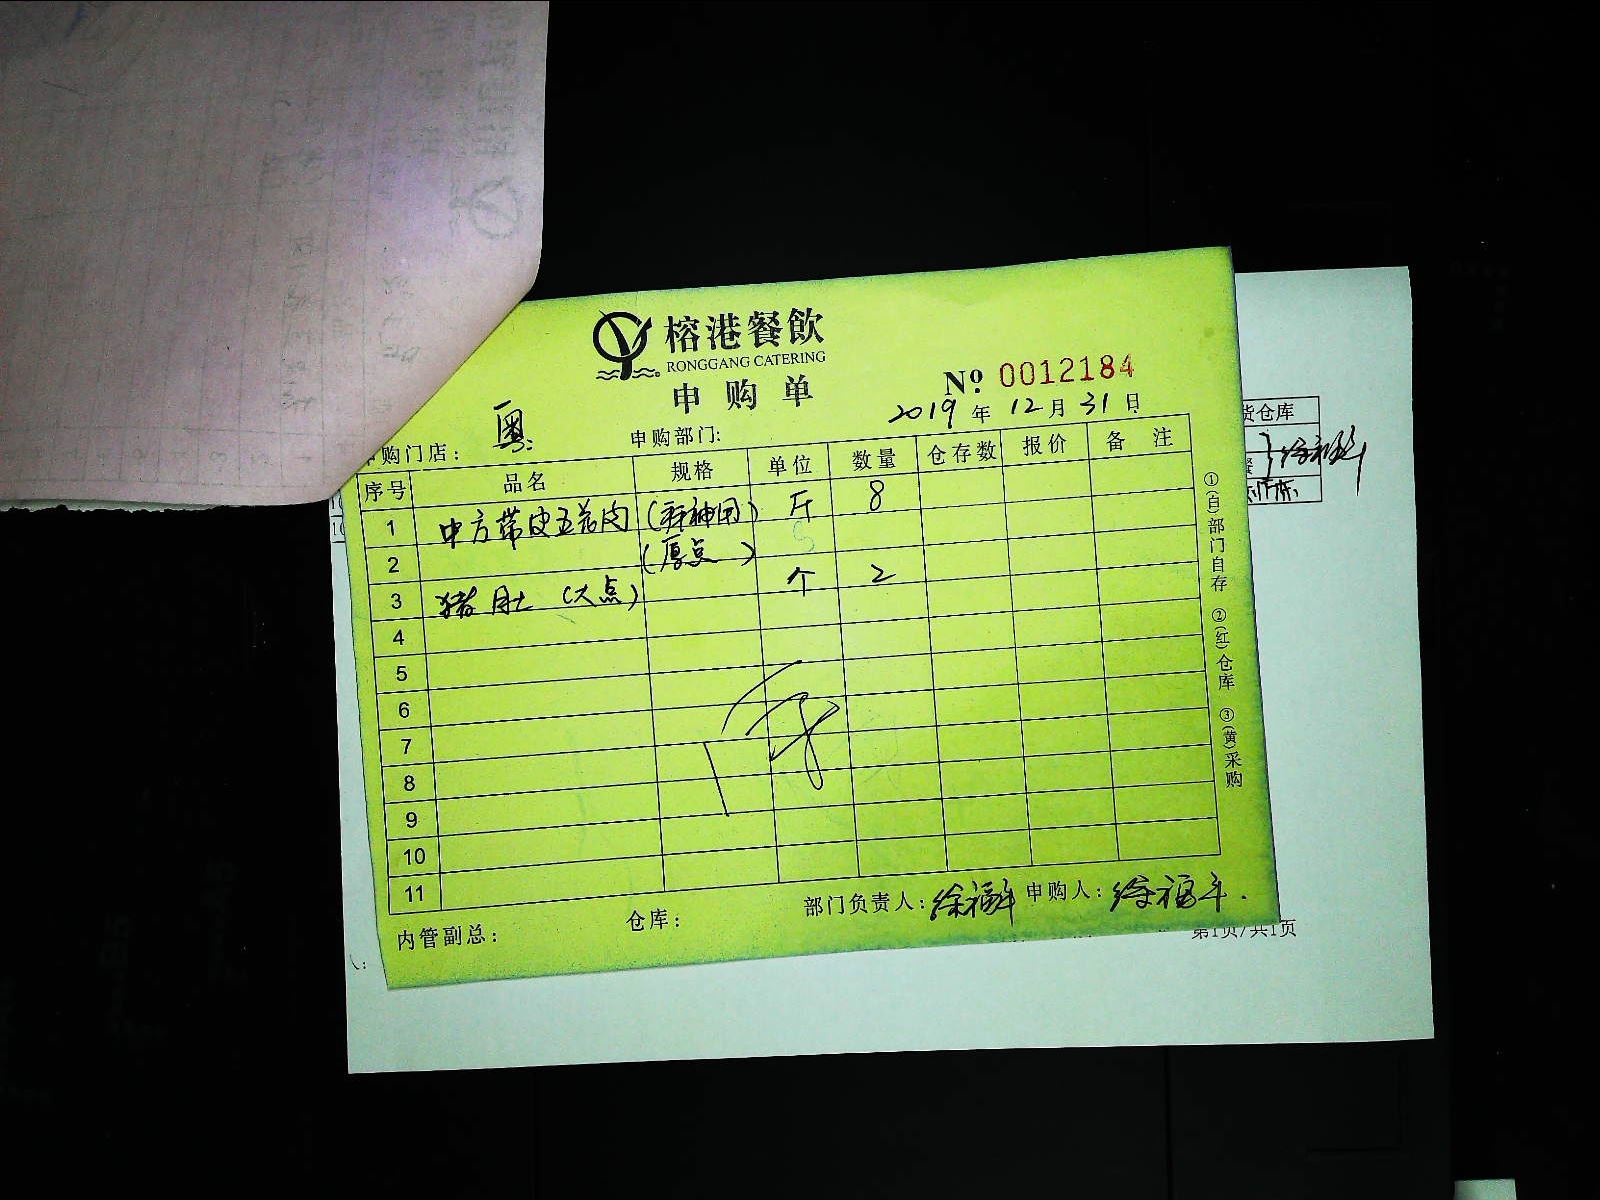 榕港餐飲
RONGGANG CATERING
申购单
№ 0012184
2019年12月31日
申购门店: 粤 申购部门:
序号 品名 规格 单位 数量 仓存数 报价 备注
1 中方带皮五花肉 (拜神用) 斤 8
2 (厚点)
3 猪肚 (大点) 个 2
4
5
6
7
8
9
10
11
内管副总: 仓库: 部门负责人: 徐福斗 申购人: 徐福斗.
①(白)部门自存 ②(红)仓库 ③(黄)采购
货仓库
第1页/共1页